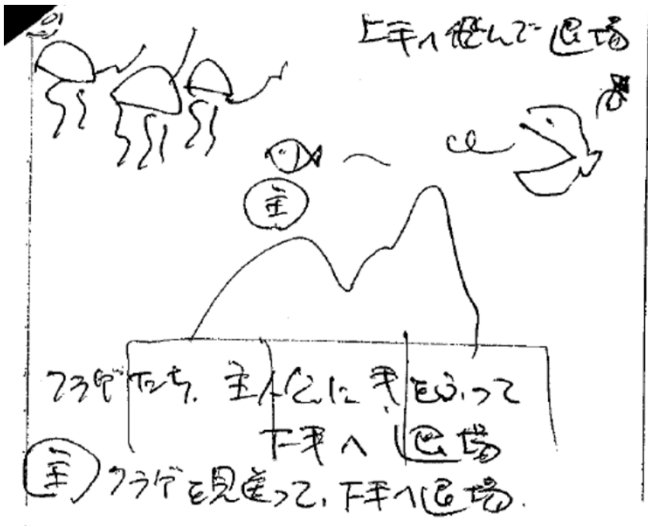 上手へ 退場
主
クラゲたち、主人公に手をふって
下手へ退場
主 クラゲを見送って、下手へ退場.